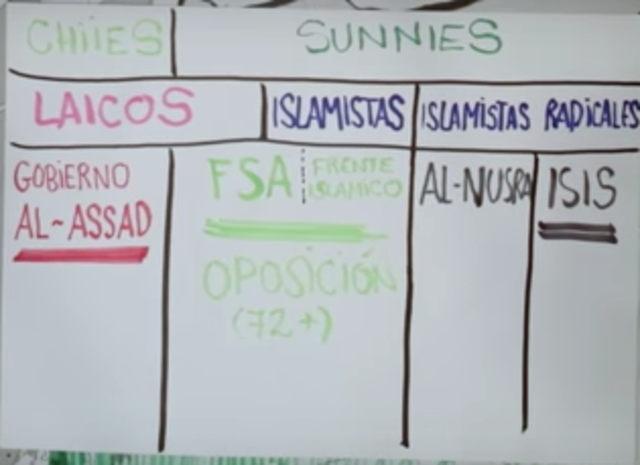 CHIIES SUNNIES
LAICOS ISLAMISTAS ISLAMISTAS RADICALES
GOBIERNO
AL-ASSAD
FSA
FRENTE
ISLAMICO
OPOSICIÓN
(72+)
AL-NUSRA
ISIS